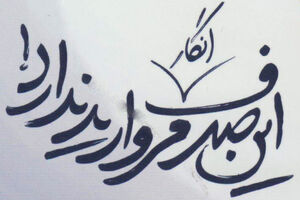 انگار
این صدف مروارید ندارد!